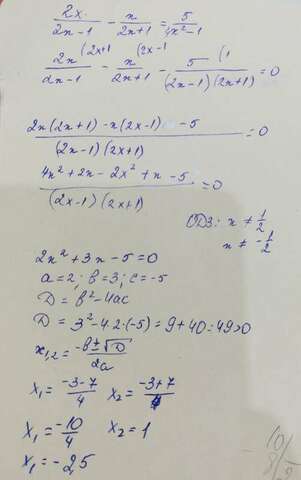 2x/(2x-1) - x/(2x+1) = 5/(4x²-1)
2x (2x+1/(2x-1) - x (2x-1/(2x+1) - 5 (1/((2x-1)(2x+1)) = 0
(2x(2x+1) - x(2x-1) - 5)/((2x-1)(2x+1)) = 0
(4x²+2x-2x²+x-5)/((2x-1)(2x+1)) = 0
ОДЗ: x ≠ 1/2
x ≠ -1/2
2x²+3x-5=0
a=2; b=3; c=-5
D = b²-4ac
D = 3²-4·2·(-5) = 9+40=49>0
x₁,₂ = (-b±√D)/2a
x₁ = (-3-7)/4 x₂ = (-3+7)/4
x₁ = -10/4 x₂ = 1
x₁ = -2,5